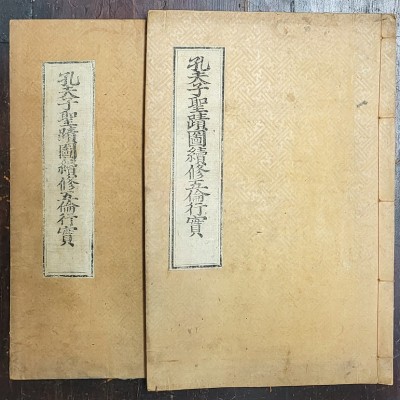 孔夫子聖蹟圖續修五倫行實
孔夫子聖蹟圖續修五倫行實